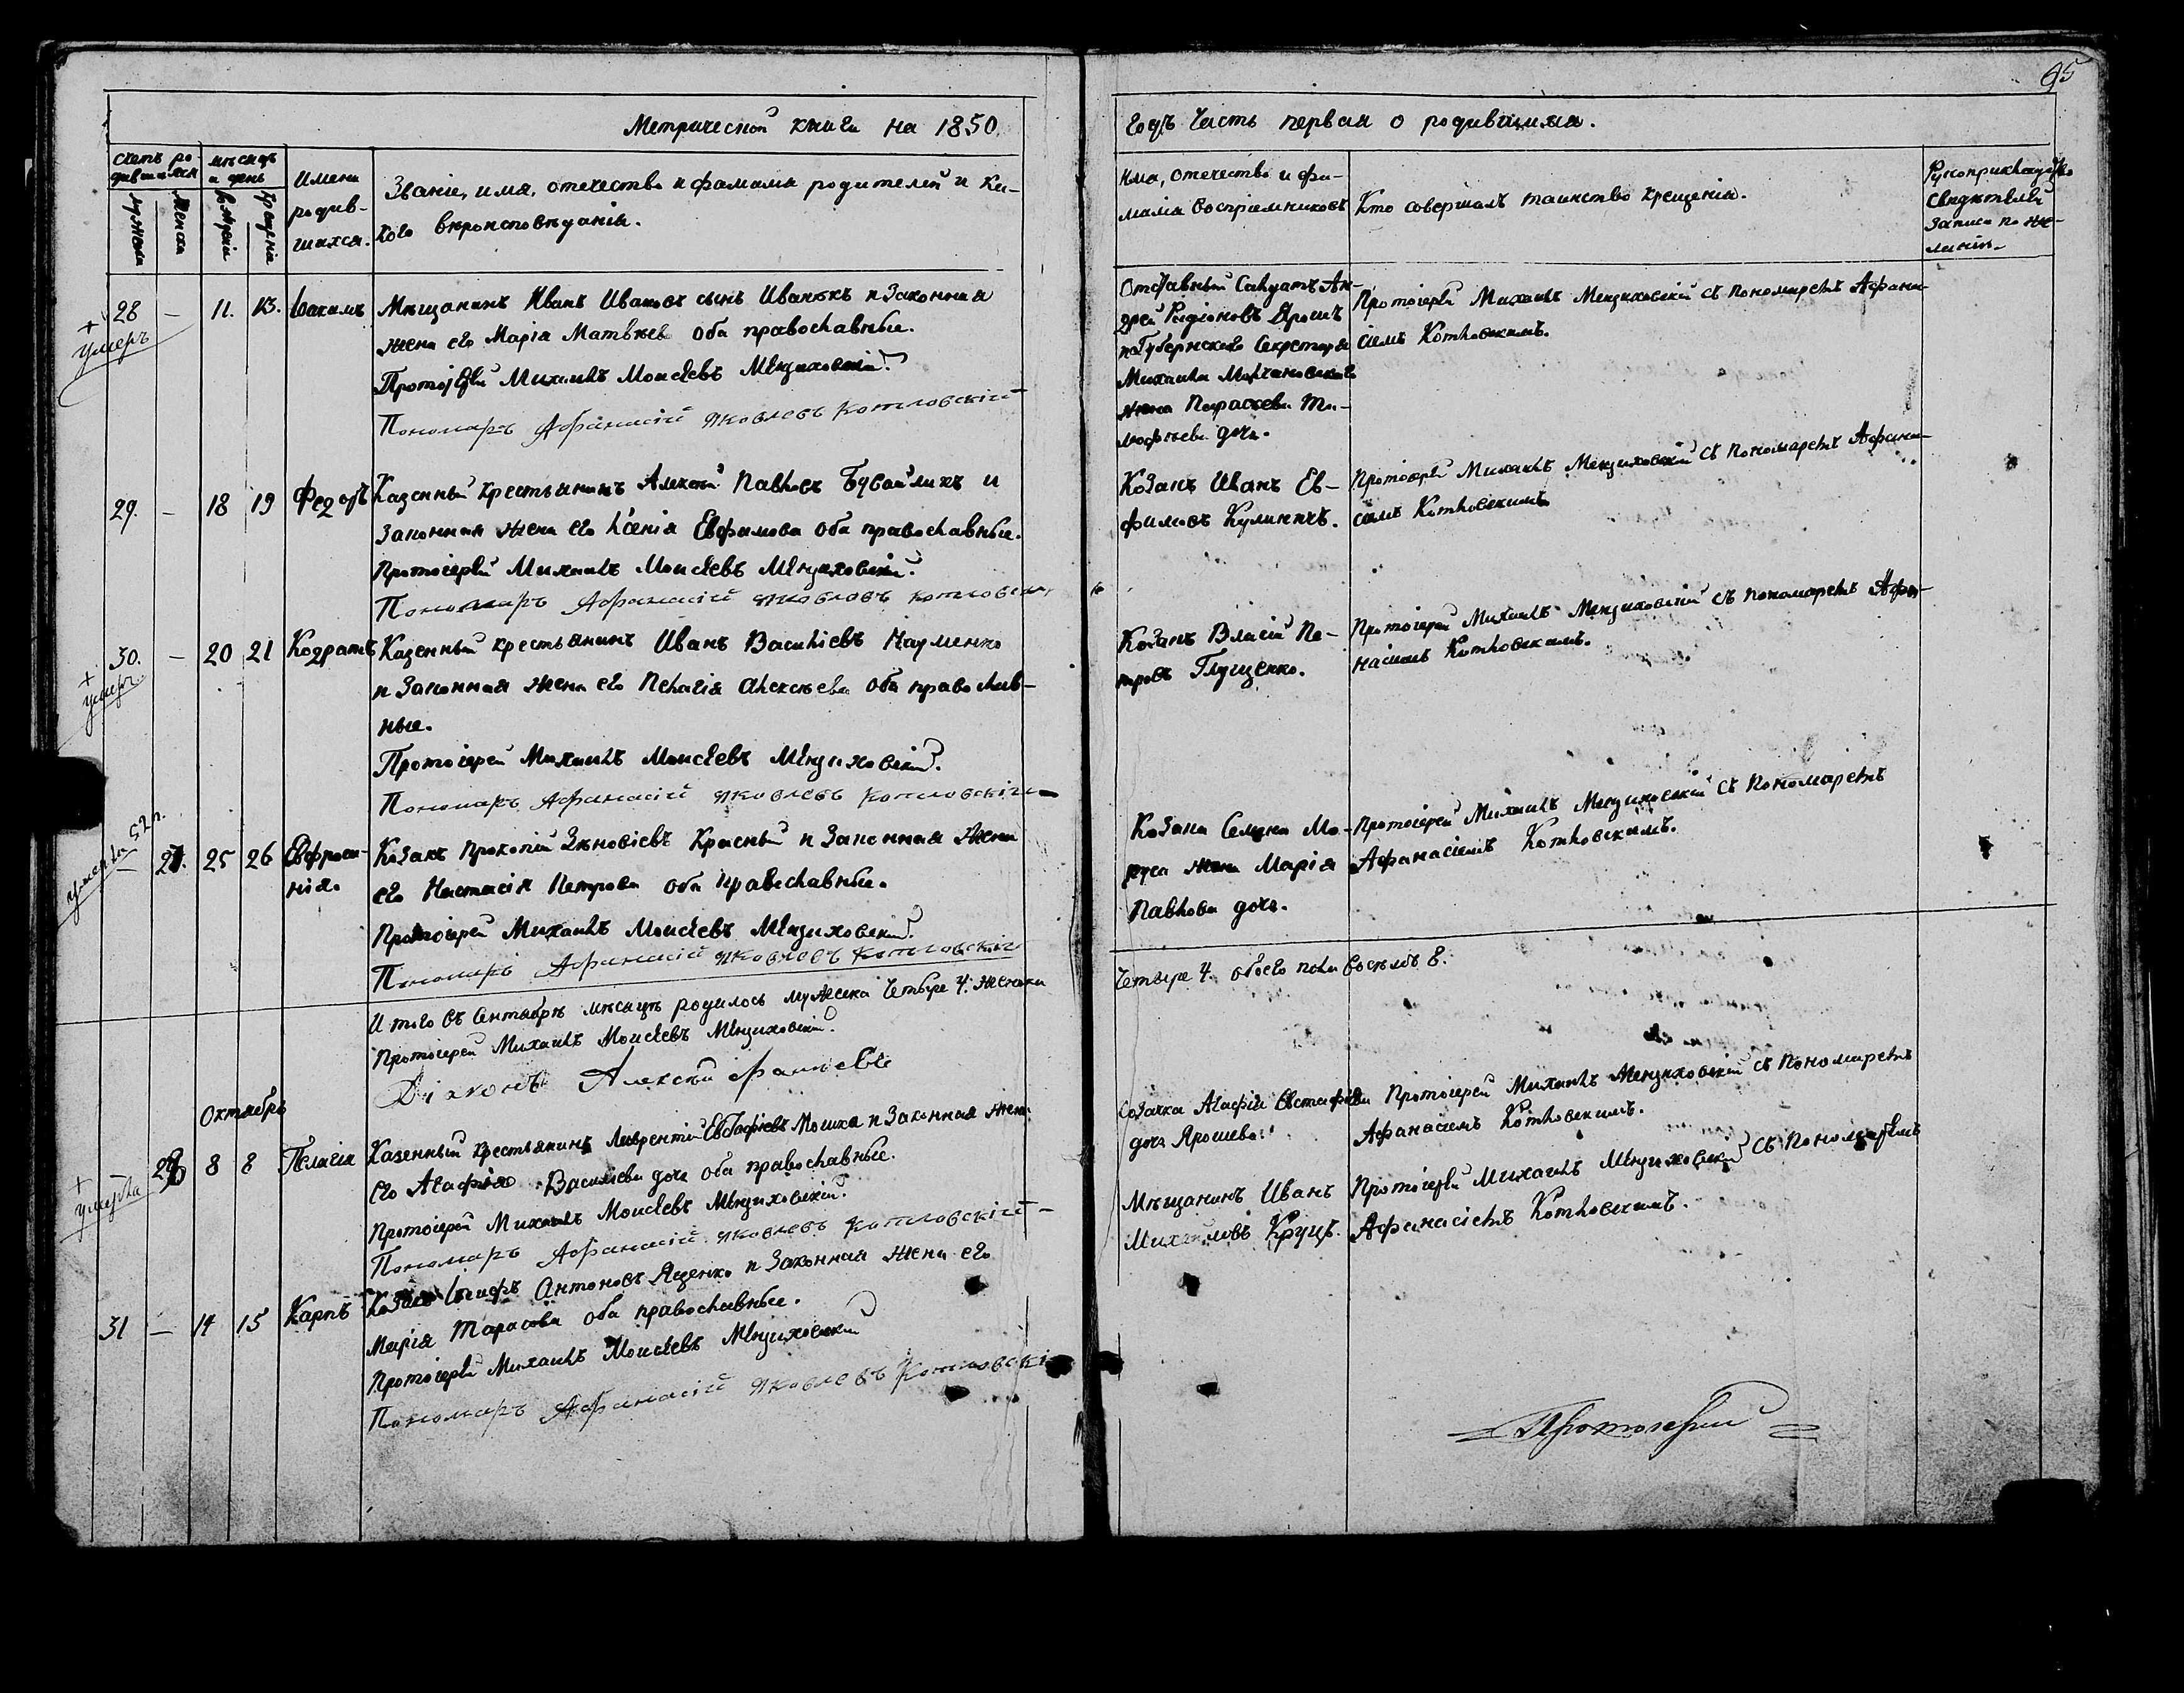 65
Метрической книги на 1850.
годъ Часть первая о родившихся.
Счетъ родившихся
мѣсяцъ и день
Имена родившихся.
Званіе, имя, отечество и фамилія родителей и какого вѣроисповѣданія.
Имя, отечество и фамилія воспріемниковъ
Кто совершалъ таинство крещенія.
Рукоприкладство свидѣтелей записи по желанію
мужеска
женска
рожденія
крещенія
28 — 11. 13. Іоакимъ
+ умеръ
Мѣщанинъ Иванъ Ивановъ сынъ Иванюкъ и законная
жена его Марія Матвѣева оба православные.
Протоіерей Михаилъ Моисеевъ Менциховскій.
Пономарь Афанасій Яковлевъ Котловскій
Отставный Солдатъ Ан-
дрей Радіоновъ Ярошъ
и Губернскаго Секретаря
Михаила
жена Параскева Ти-
мофѣева дочь.
Протоіерей Михаилъ Менциховскій съ пономаремъ Афана-
сіемъ Котловскимъ.
29. — 18 19 Федоръ
Казенный крестьянинъ Алексѣй Павловъ и
законная жена его Ксенія Евфимова оба православные.
Протоіерей Михаилъ Моисеевъ Менциховскій.
Пономарь Афанасій Яковлевъ Котловскій
Козакъ Иванъ Ев-
фимовъ Кулиничъ.
Протоіерей Михаилъ Менциховскій съ пономаремъ Афана-
сіемъ Котловскимъ
30. — 20 21 Кодратъ
+ умеръ
Казенный крестьянинъ Иванъ Васильевъ Науменко
и законная жена его Пелагія Алексѣева оба православ-
ные.
Протоіерей Михаилъ Моисеевъ Менциховскій.
Пономарь Афанасій Яковлевъ Котловскій
Козакъ Власій Пе-
тровъ Глущенко.
Протоіерей Михаилъ Менциховскій съ пономаремъ Афа-
насіемъ Котловскимъ.
умерла 52 г.
— 27. 25 26 Евфроси-
нія.
Козакъ Прокопій Зѣновіевъ Красный и законная жена
его Настасія Петрова оба православные.
Протоіерей Михаилъ Моисеевъ Менциховскій.
Пономарь Афанасій Яковлевъ Котловскій
Козака Семена Мо-
руса жена Марія
Павлова дочь.
Протоіерей Михаилъ Менциховскій съ пономаремъ
Афанасіемъ Котловскимъ.
Итого въ Сентябрѣ мѣсяцѣ родилось мужеска четыре 4. женска
четыре 4. обоего пола восемь 8.
Протоіерей Михаилъ Моисеевъ Менциховскій.
Діаконъ Алексѣй
Октябрь
28 8 8 Пелагія
+ умерла
Казенный крестьянинъ Лаврентій Евстафіевъ Мошка и законная жена
его Агафія Васильева дочь оба православные.
Протоіерей Михаилъ Моисеевъ Менциховскій.
Пономарь Афанасій Яковлевъ Котловскій
Козачка Агафія Евстафіева
дочь Ярошева.
Протоіерей Михаилъ Менциховскій съ пономаремъ
Афанасіемъ Котловскимъ.
31 — 14 15 Карпъ
Козакъ Іосифъ Антоновъ Яценко и законная жена его
Марія Тарасова оба православные.
Протоіерей Михаилъ Моисеевъ Менциховскій
Пономарь Афанасій Яковлевъ Котловскій
Мѣщанинъ Иванъ
Михайловъ Круцъ.
Протоіерей Михаилъ Менциховскій съ пономаремъ
Афанасіемъ Котловскимъ.
Протоіерей